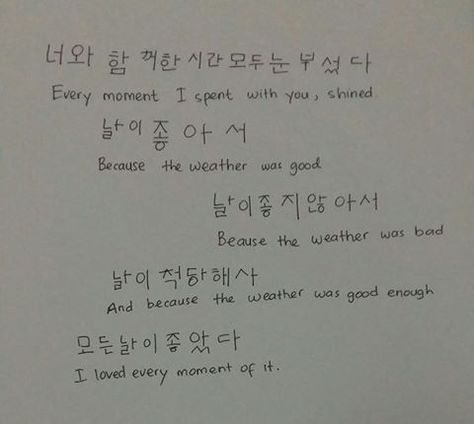 너와 함 꺼한 시간 모두 눈 부 셨 다
Every moment I spent with you, shined
날이 좋 아 서
Because the weather was good
날이 좋 지 않 아 서
Beause the weather was bad
날이 적당해사
And because the weather was good enough
모든 날 이 좋 았 다
I loved every moment of it.